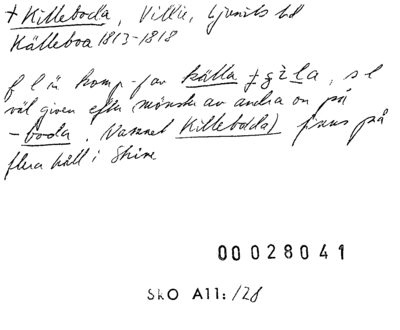 + Killeboda, Villie, Ljunits hd
Källeboa 1813-1818
f l är komp. för källa
väl given efter mönster av andra on på
-boda. Namnet Killeboda) finns på
flera håll i Skåne
00028041
SkO A11:128